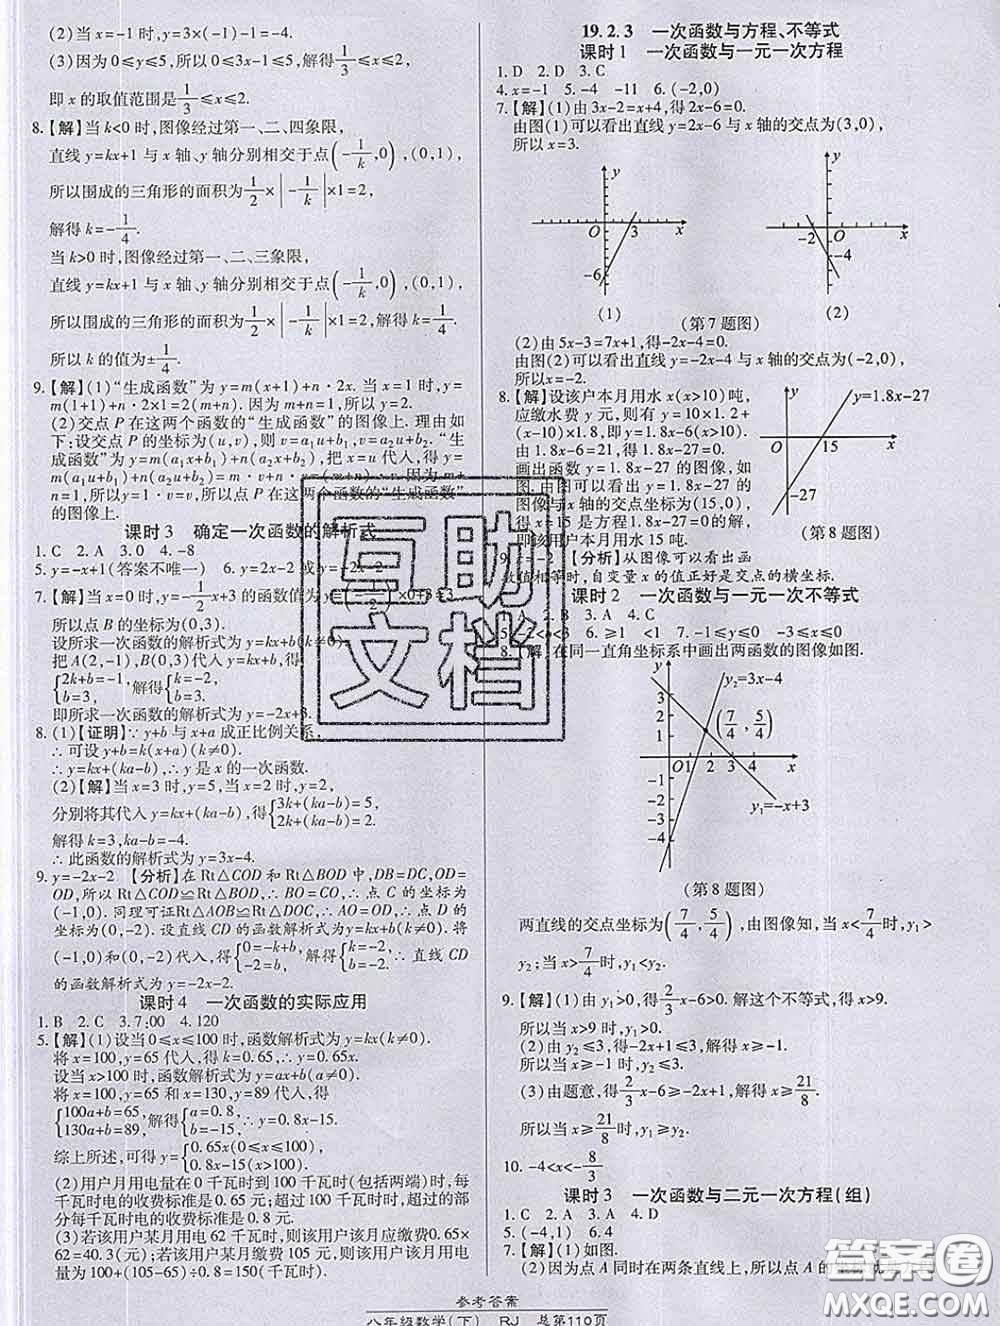 (2)当x=-1时,y=3×(-1)-1=-4.
(3)因为0≤y≤5,所以0≤3x-1≤5,解得1/3≤x≤2.
即x的取值范围是1/3≤x≤2.
8.【解】当k<0时,图像经过第一、二、四象限,
直线y=kx+1与x轴、y轴分别相交于点(-1/k,0),(0,1),
所以围成的三角形的面积为1/2×|-1/k|×1=2,
解得k=-1/4.
当k>0时,图像经过第一、二、三象限,
直线y=kx+1与x轴、y轴分别相交于点(-1/k,0),(0,1),
所以围成的三角形的面积为1/2×|-1/k|×1=2,解得k=1/4.
所以k的值为±1/4.
9.【解】(1)“生成函数”为y=m(x+1)+n·2x.当x=1时,y=
m(1+1)+n·2×1=2(m+n).因为m+n=1,所以y=2.
(2)交点P在这两个函数的“生成函数”的图像上.理由如
下:设交点P的坐标为(u,v),则v=a₁u+b₁,v=a₂u+b₂.“生
成函数”为y=m(a₁x+b₁)+n(a₂x+b₂),把x=u代入,得y=
m(a₁u+b₁)+n(a₂u+b₂)=mv+nv=(m+n)v.因为m+
n=1,所以y=1·v=v,所以点P在这两个函数的“生成函数”
的图像上.
课时3 确定一次函数的解析式
1.C 2.A 3.0 4.-8
5.y=-x+1(答案不唯一) 6.y=2x-2或y=-2x-2
7.【解】当x=0时,y=-1/2x+3的函数值为y= ×0+3=3
所以点B的坐标为(0,3).
设所求一次函数的解析式为y=kx+b(k≠0)
把A(2,-1),B(0,3)代入y=kx+b,得
{2k+b=-1, b=3, 解得{k=-2, b=3.
即所求一次函数的解析式为y=-2x+3.
8.(1)【证明】∵y+b与x+a成正比例关系,
∴可设y+b=k(x+a)(k≠0).
∴y=kx+(ka-b),∴y是x的一次函数.
(2)【解】当x=3时,y=5,当x=2时,y=2,
分别将其代入y=kx+(ka-b),得{3k+(ka-b)=5, 2k+(ka-b)=2.
解得k=3,ka-b=-4.
∴此函数的解析式为y=3x-4.
9.y=-2x-2 【分析】在Rt△COD和Rt△BOD中,DB=DC,OD=
OD,所以Rt△COD≌Rt△BOD,∴BO=CO,∴点C的坐标为
(-1,0).同理可证Rt△AOB≌Rt△DOC,∴AO=OD,∴点D的
坐标为(0,-2).设直线CD的函数解析式为y=kx+b(k≠0).将
(-1,0)和(0,-2)代入,得{0=-k+b, -2=b, 解得{k=-2, b=-2, ∴直线CD
的函数解析式为y=-2x-2.
课时4 一次函数的实际应用
1.B 2.C 3.7:00 4.120
5.【解】(1)设当0≤x≤100时,函数解析式为y=kx(k≠0).
将x=100,y=65代入,得k=0.65,∴y=0.65x.
设当x>100时,函数解析式为y=ax+b(a≠0).
将x=100,y=65和x=130,y=89代入,得
{100a+b=65, 130a+b=89, 解得{a=0.8, b=-15, ∴y=0.8x-15.
综上所述,可得y={0.65x(0≤x≤100), 0.8x-15(x>100).
(2)用户月用电量在0千瓦时到100千瓦时(包括两端)时,每
千瓦时电的收费标准是0.65元;超过100千瓦时时,超过的部
分每千瓦时电的收费标准是0.8元.
(3)若该用户某月用电62千瓦时,则该用户该月应缴费0.65×
62=40.3(元);若该用户某月缴费105元,则该用户该月用电量
为100+(105-65)÷0.8=150(千瓦时).
19.2.3 一次函数与方程、不等式
课时1 一次函数与一元一次方程
1.D 2.D 3.C
4.x=-1 5.-4 -11 6.(-2,0)
7.【解】(1)由3x-2=x+4,得2x-6=0.
由图(1)可以看出直线y=2x-6与x轴的交点为(3,0),
所以x=3.
y
O 3 x
-6
(1)
y
-2 O x
(2)
(第7题图)
(2)由5x-3=7x+1,得-2x-4=0.
由图(2)可以看出直线y=-2x-4与x轴的交点为(-2,0),
所以x=-2.
8.【解】设该户本月用水x(x>10)吨,
应缴水费y元,则有y=10×1.2+
(x-10)×1.8,即y=1.8x-6(x>10).
由1.8x-6=21,得1.8x-27=0.
画出函数y=1.8x-27的图像,如
图.由图可以看出函数y=1.8x-27
的图像与x轴的交点坐标为(15,0),
得x=15是方程1.8x-27=0的解.
即该用户本月用水15吨.
y
y=1.8x-27
O 15 x
-27
(第8题图)
9.x=-2 【分析】从图像可以看出函
数值相等时,自变量x的值正好是交点的横坐标.
课时2 一次函数与一元一次不等式
A 2.B 3.A 4.C
5.-2<x<3 6.≥1 <1 7.-1≤y≤0 -3≤x≤0
8.【解】在同一直角坐标系中画出两函数的图像如图.
y
y₂=3x-4
3
2
1
(7/4,5/4)
O 1 2 3 4 x
-1
-2
-3
-4
y₁=-x+3
(第8题图)
两直线的交点坐标为(7/4,5/4),由图像知,当x<7/4时,y₁>
y₂;当x>7/4时,y₁<y₂.
9.【解】(1)由y₁>0,得2/3x-6>0.解这个不等式,得x>9.
所以当x>9时,y₁>0.
(2)由y₂≤3,得-2x+1≤3.解得x≥-1.
所以当x≥-1时,y₂≤3.
(3)由题意,得2/3x-6≥-2x+1,解得x≥21/8.
所以当x≥21/8时,y₁≥y₂.
10.-4<x<-8/3
课时3 一次函数与二元一次方程(组)
1.C 2.C 3.A 4.D
5.(-4,1) 6.4
7.【解】(1)如图.
(2)因为点A同时在两条直线上,所以点A的
参考答案
八年级数学(下) RJ 总第110页
互助文档
答案卷
MXQE.COM